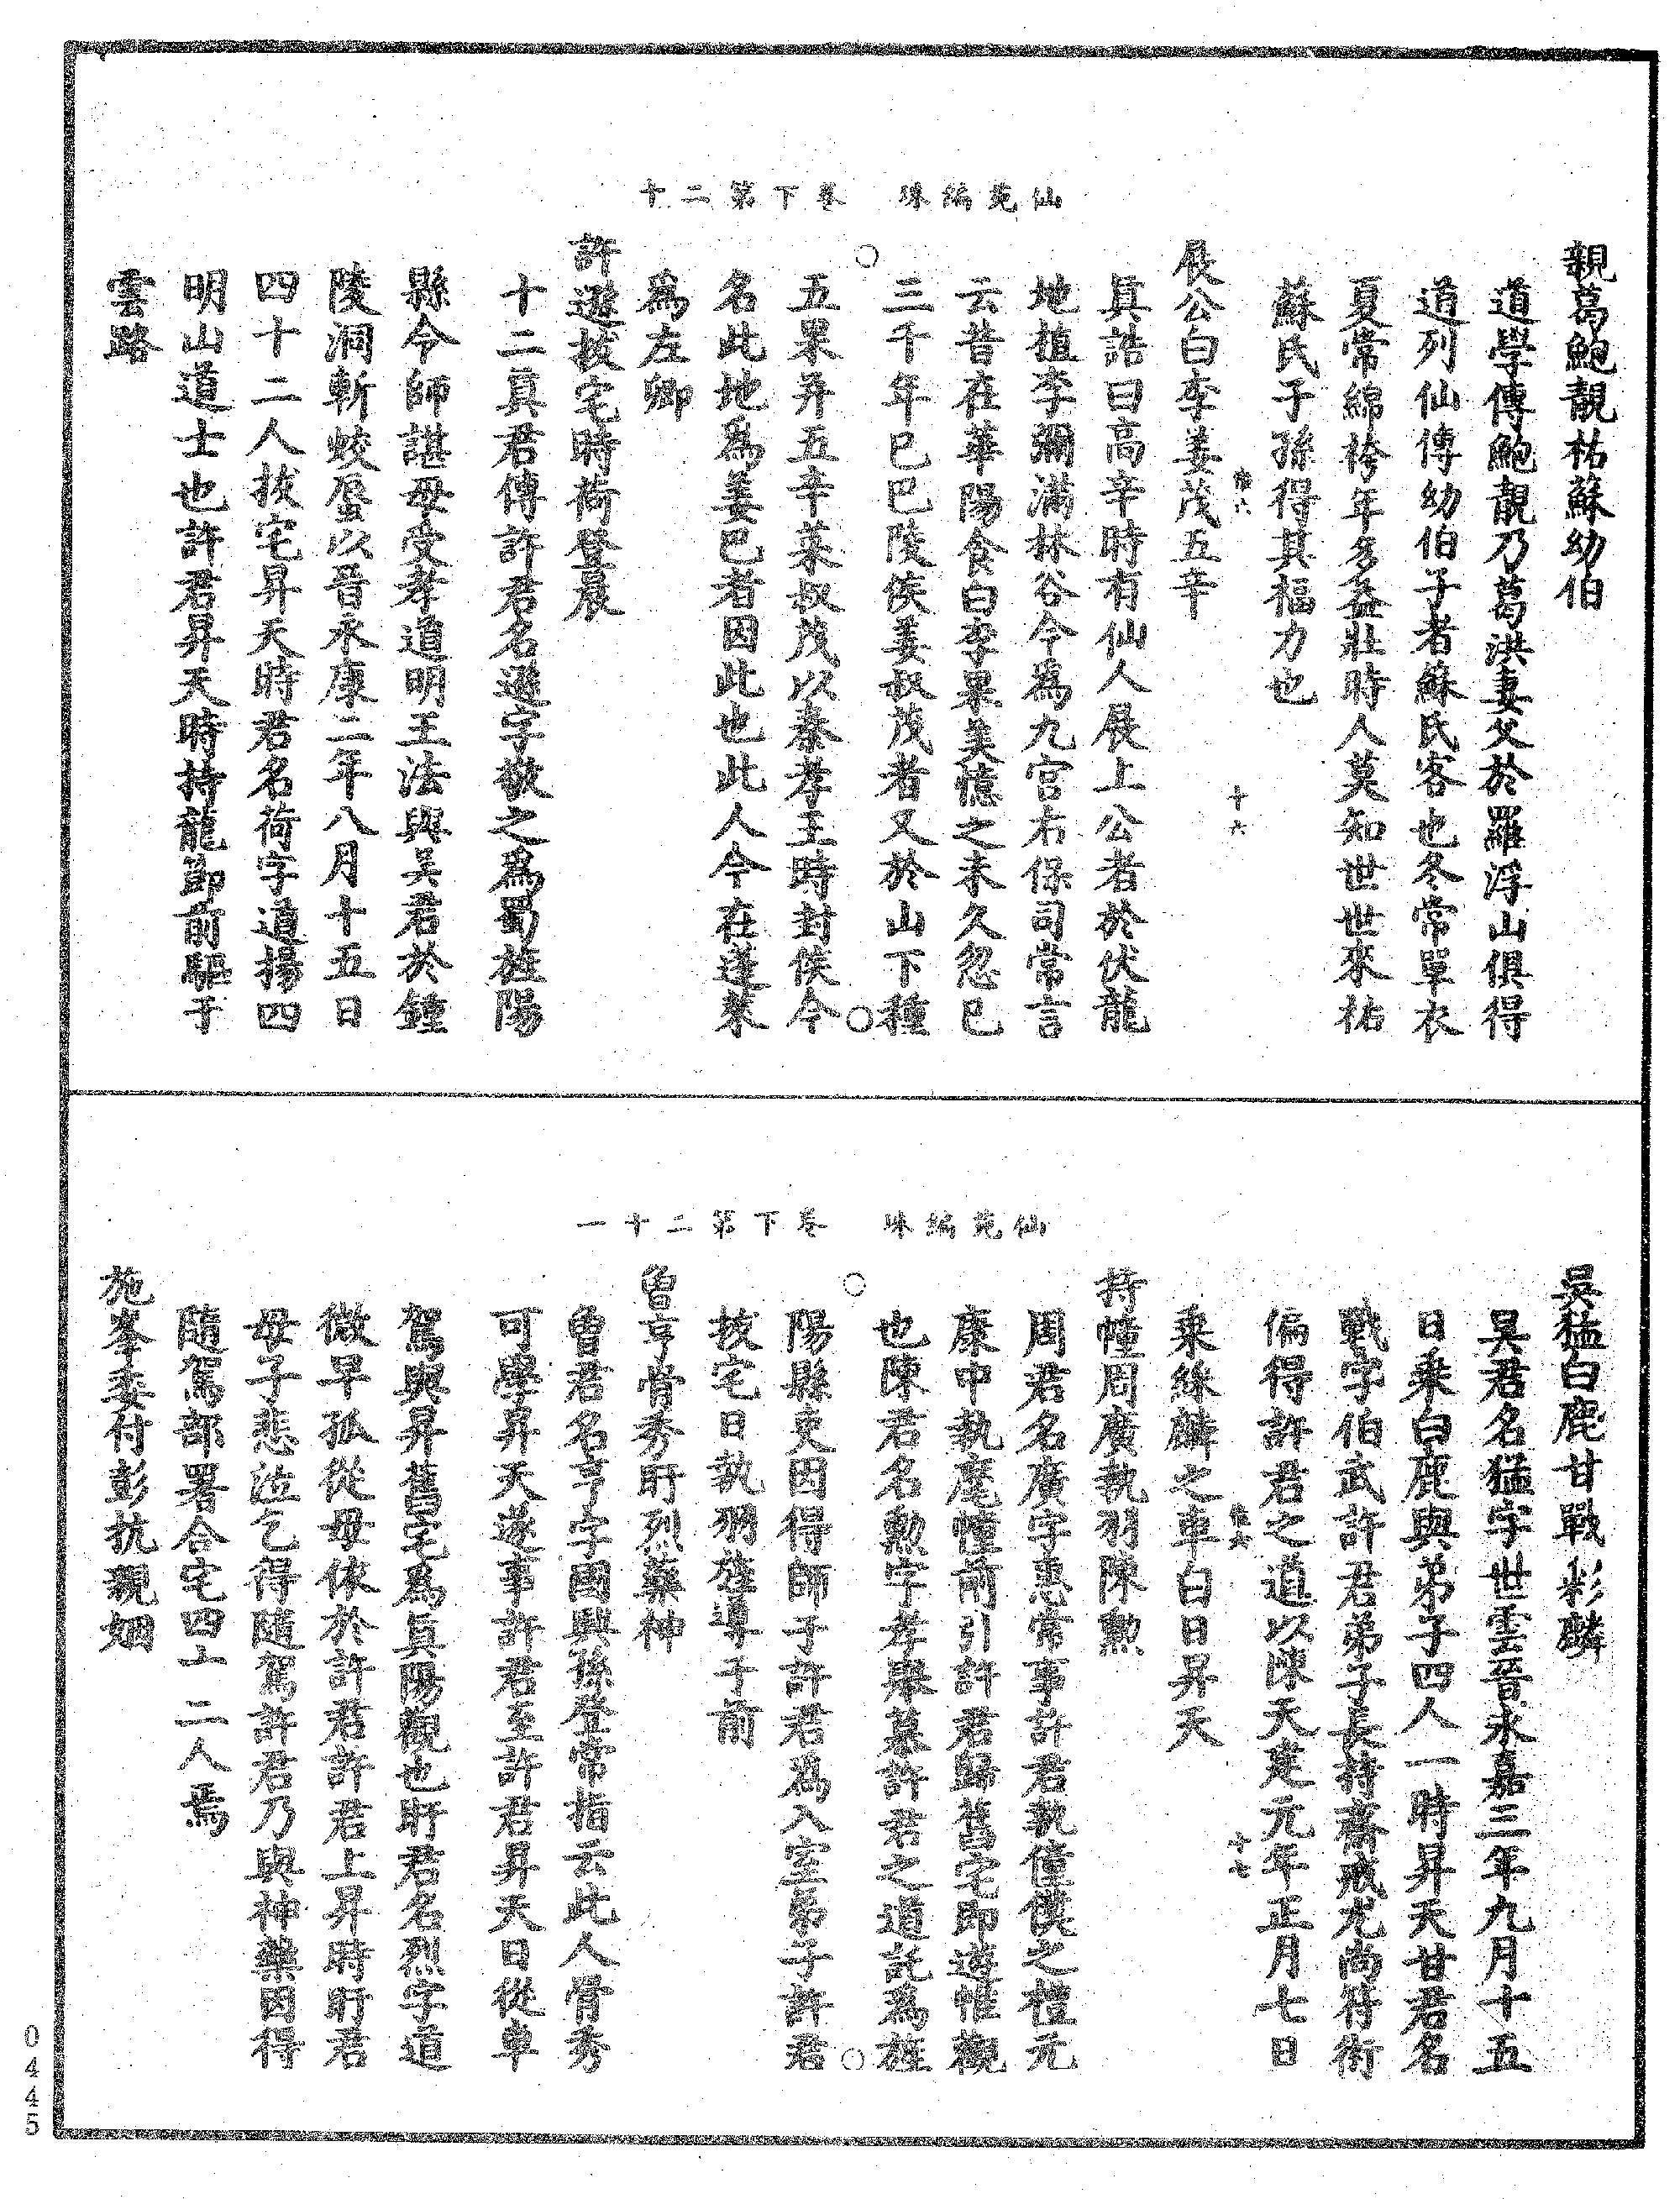 仙苑編珠　卷下第二十
親葛鮑靚祐蘇幼伯
道學傳鮑靚乃葛洪妻父於羅浮山俱得
道列仙傳幼伯子者蘇氏客也冬常單衣
夏常綿袴年多益壯時人莫知世世來祐
蘇氏子孫得其福力也
十六
展公白李姜茂五辛
真誥曰高辛時有仙人展上公者於伏龍
地植李彌滿林谷今為九宮右保司常言
云昔在華陽食白李果美憶之未久忽已
三千年巳巴陵侯姜叔茂者又於山下種
五果并五辛菜叔茂以秦孝王時封侯今
名此地為姜巴者因此也此人今在蓬萊
為左卿
許遜拔宅時荷登晨
十二真君傳許君名遜字敬之為蜀旌陽
縣令師諶母受孝道明王法與吳君於鍾
陵洞斬蛟蜃以晉永康二年八月十五日
四十二人拔宅昇天時君名荷字道揚四
明山道士也許君昇天時持龍節前驅于
雲路
仙苑編珠　卷下第二十一
吳猛白鹿甘戰彩麟
吳君名猛字世雲晉永嘉三年九月十五
日乘白鹿與弟子四人一時昇天甘君名
戰字伯武許君弟子長持齋戒尤尚符術
偏得許君之道以陳天建元年正月七日
十七
乘綵麟之車白日昇天
持幢周廣執羽陳勲
周君名廣字惠常事許君執僮僕之禮元
康中執麾幢前引許君歸舊宅即遊惟觀
也陳君名勲字孝舉慕許君之道託為旌
陽縣吏因得師于許君為入室弟子許君
拔宅日執羽旌導于前
曾亨骨秀盱烈藥神
曾君名亨字國興孫登常指云此人骨秀
可學昇天遂事許君至許君昇天日從車
駕與昇舊宅為真陽觀也盱君名烈字道
微早孤從母依於許君許君上昇時盱君
母子悲泣乞得隨駕許君乃與神藥因得
隨駕部署合宅四十二人焉
施峯委付彭抗親姻
0445